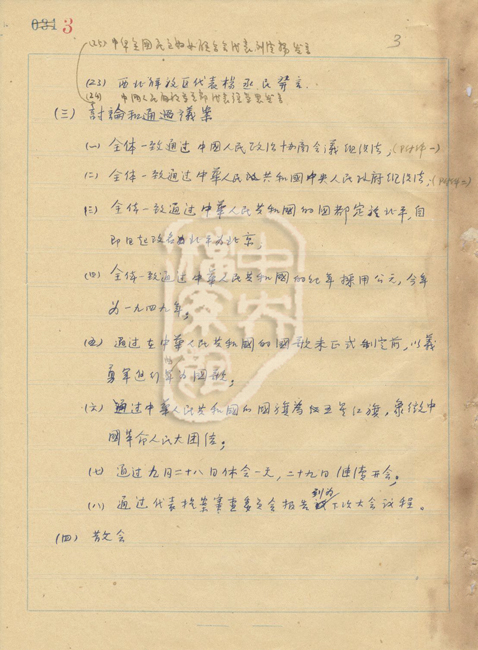 031 3
3
(25) 中华全国民主妇女联合会代表刘清扬发言
(23) 西北解放区代表楊丞民發言.
(24) 中国人民解放军
(三) 討論和通過議案
(一) 全体一致通過中國人民政治协商会議組织法, (附件一)
(二) 全体一致通過中華人民共和國中央人民政府組织法, (附件二)
(三) 全体一致通過中華人民共和國的國都定於北平, 自
即日起改名北平为北京;
(四) 全体一致通過中華人民共和國的紀年採用公元, 今年
为一九四九年;
(五) 通过在中華人民共和國的國歌未正式制定前, 以義
勇軍進行曲为國歌;
(六) 通过中華人民共和國的國旗為红地五星红旗, 象徵中
國革命人民大团结;
(七) 通过九月二十八日休会一天, 二十九日継續开会;
(八) 通过代表提案審查委員会报告列为下次大会议程。
(四) 散会
中央
檔案館